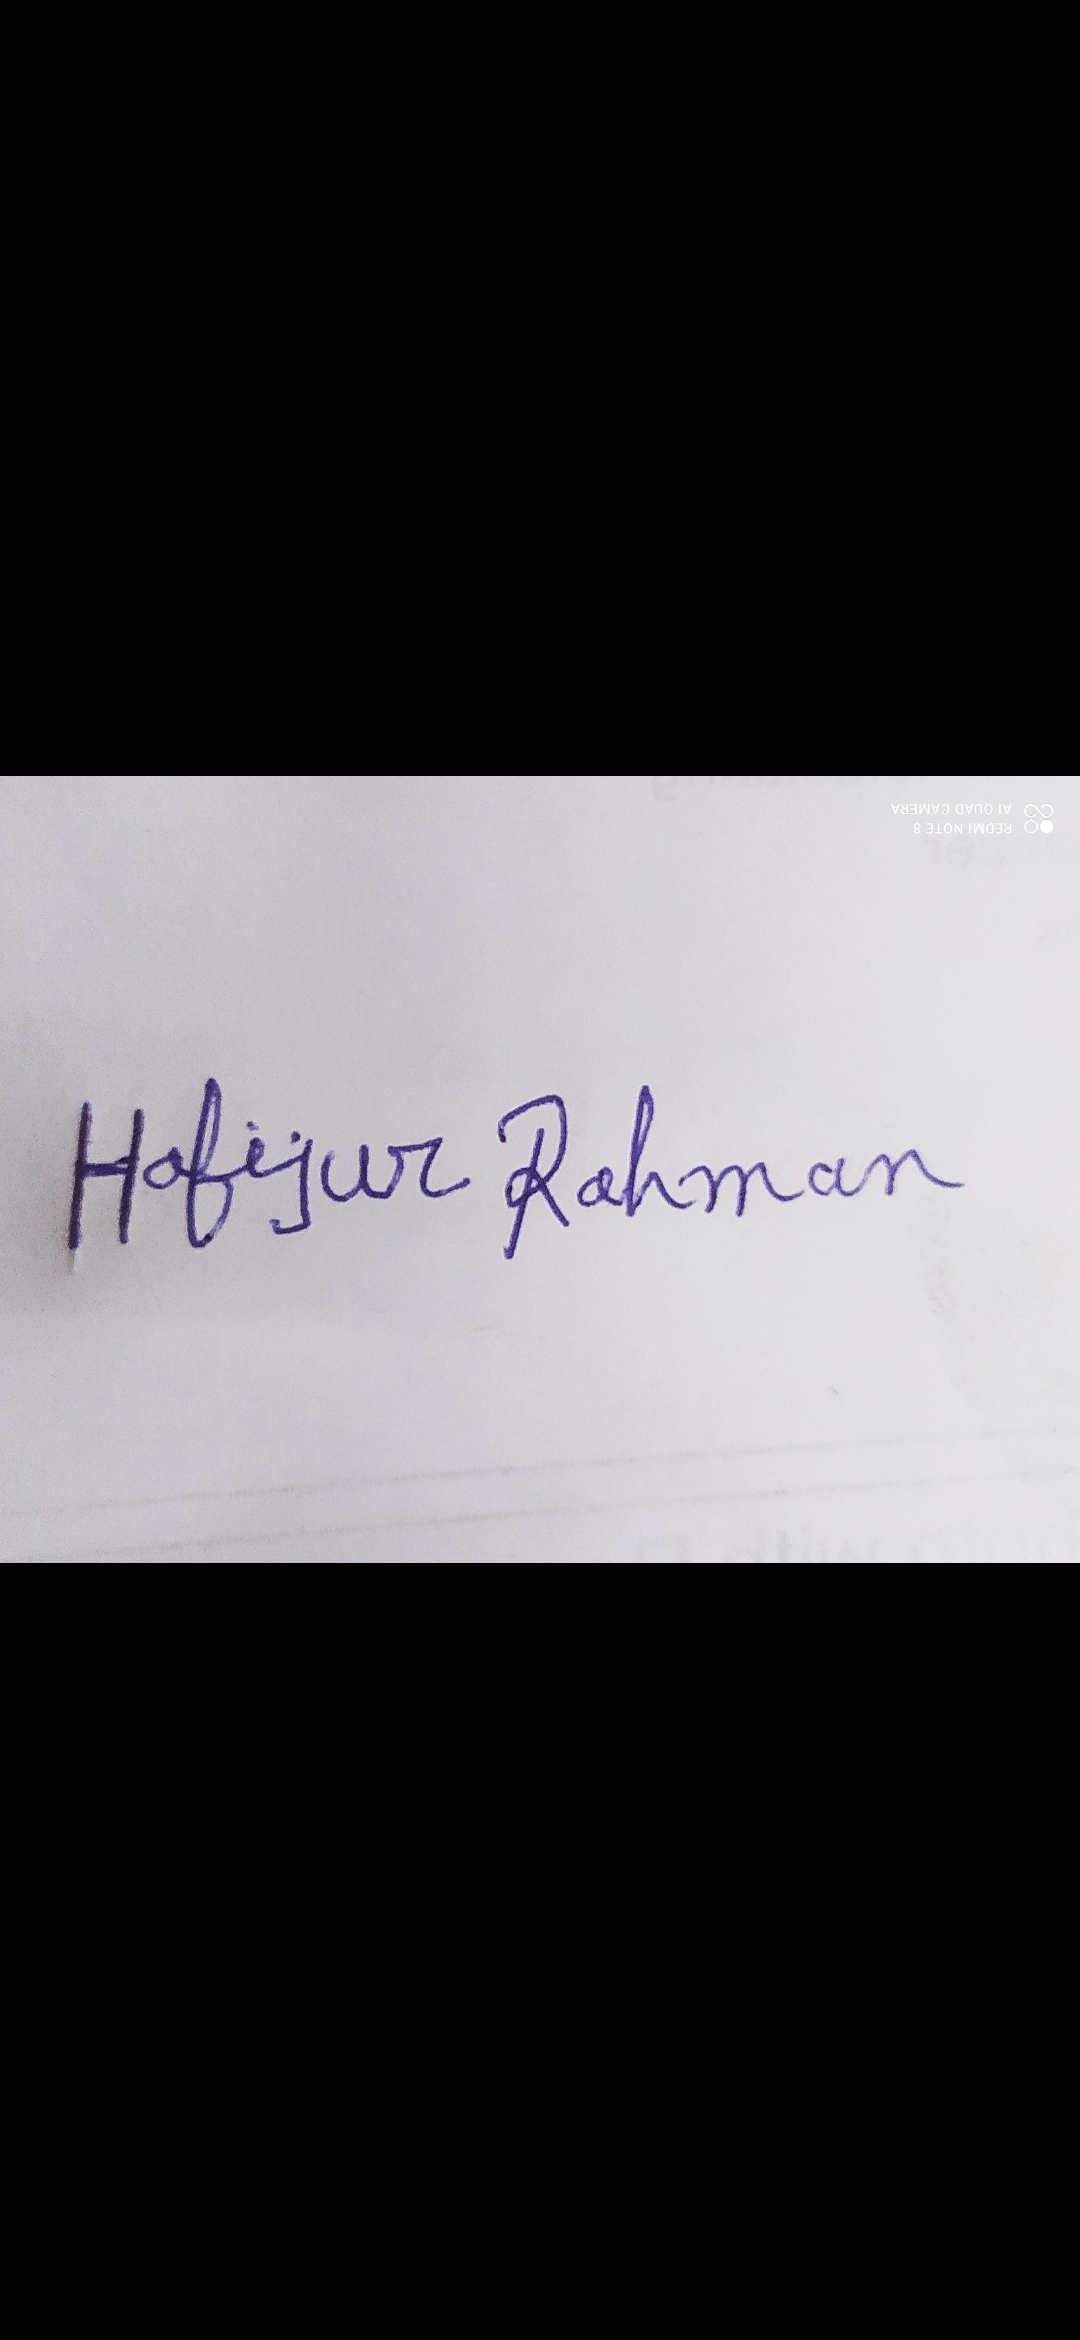 REDMI NOTE 8
AI QUAD CAMERA
Hafijur Rahman